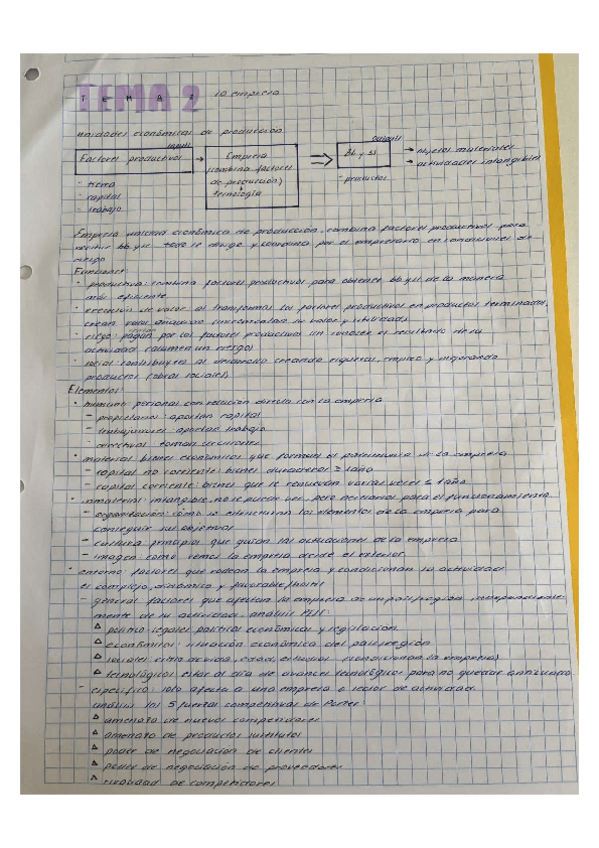 TEMA 2 la empresa
unidades económicas de producción
inputs outputs
Factores productivos → Empresa ⇒ Bb y ss → objetos materiales
(combina factores → actividades intangibles
- tierra de producción) - productos
- capital tecnología
- trabajo
Empresa: unidad económica de producción, combina factores productivos para
obtener bb y ss. todo se dirige y coordina por el empresario en condiciones de
riesgo
Funciones:
• productiva: combina factores productivos para obtener bb y ss de la manera
más eficiente
• creación de valor: al transformar los factores productivos en productos terminados,
crean valor añadido incrementan su valor y utilidad
• riesgo: pagan por los factores productivos sin conocer el resultado de su
actividad (asumen un riesgo)
• social: contribuyen al desarrollo creando riqueza, empleo y mejorando
productos (obras sociales)
Elementos:
• humano: personas con relación directa con la empresa
- propietarios: aportan capital
- trabajadores: aportan trabajo
- directivos: toman decisiones
• material: bienes económicos que forman el patrimonio de la empresa
- capital no corriente: bienes duraderos ≥ 1 año
- capital corriente: bienes que se renuevan varias veces ≤ 1 año
• inmaterial: intangible, no se puede ver, pero necesarios para el funcionamiento
- organización: cómo se estructuran los elementos de la empresa para
conseguir sus objetivos
- cultura: principios que guían las actuaciones de la empresa
- imagen: como vemos la empresa desde el exterior
• entorno: factores que rodean la empresa y condicionan su actividad
es complejo, dinámico y favorable/hostil
- general: factores que afectan la empresa de un país/región, independiente-
mente de su actividad. análisis PEST:
△ político legales: políticas económicas y legislación
△ económicos: situación económica del país/región
△ sociales: estilo de vida, edad, estudios (condicionan la empresa)
△ tecnológicos: estar al día de avances tecnológicos para no quedar anticuada
- específico: solo afecta a una empresa o sector de actividad.
análisis las 5 fuerzas competitivas de Porter:
△ amenaza de nuevos competidores
△ amenaza de productos sustitutos
△ poder de negociación de clientes
△ poder de negociación de proveedores
△ rivalidad de competidores